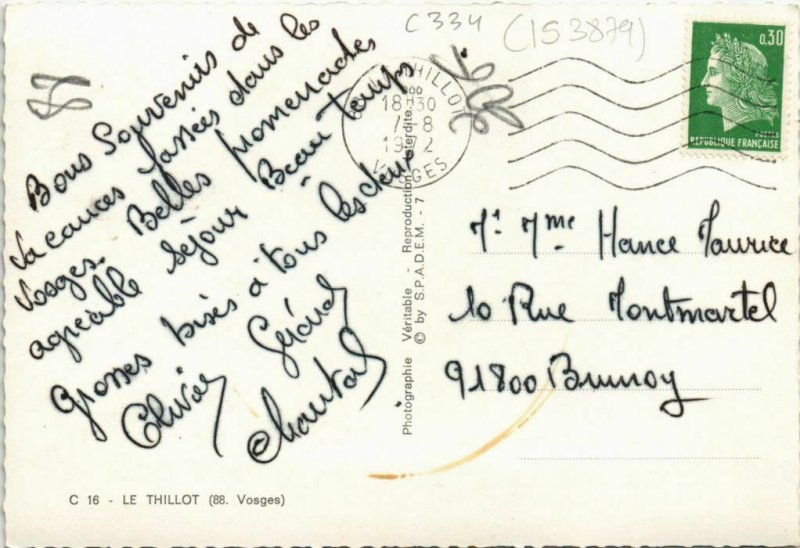 C334 (153879)
87
Bons Souvenirs de
vacances passées dans les
Vosges. Belles promenades
agréable séjour Beau temps
grosses bises à tous les deux
Olivier Gérard
Chantal
LE THILLOT
18H30
7-8
1972
VOSGES
0,30
POSTES
REPUBLIQUE FRANÇAISE
Photographie Véritable - Reproduction interdite.
© by S.P.A.D.E.M. - 7
Mr Mme Hance Maurice
10 Rue Montmartel
91800 Brunoy
C 16 - LE THILLOT (88. Vosges)